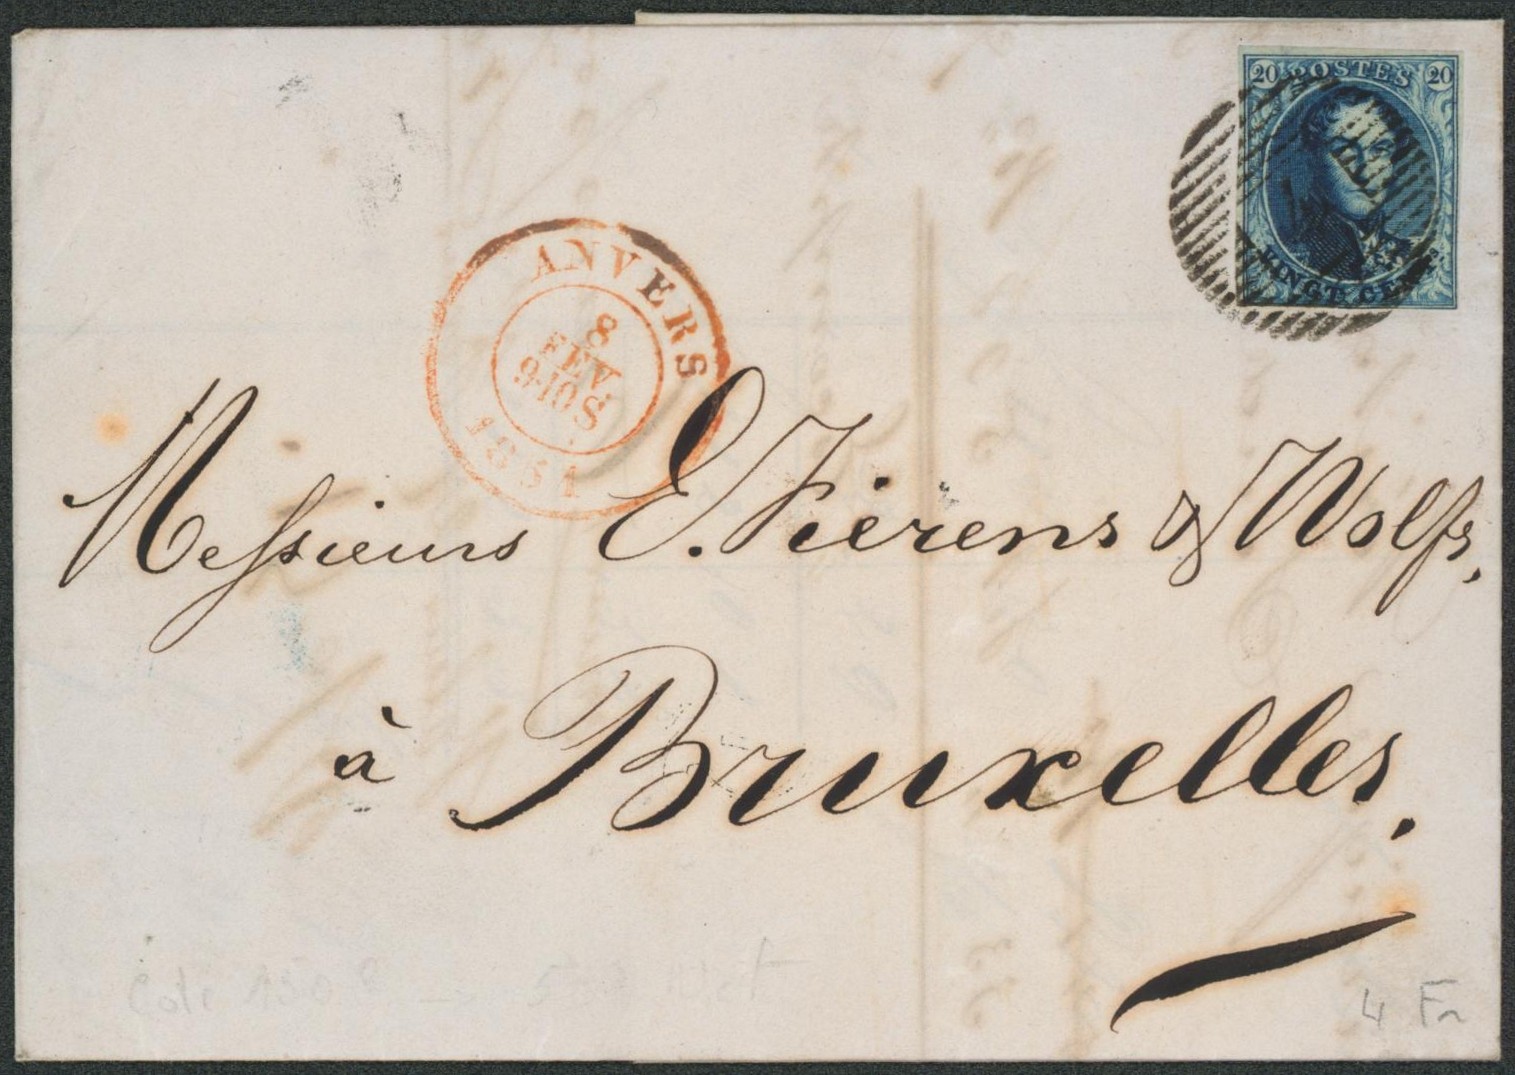 20 POSTES 20
VINGT CENTS
ANVERS
8
FEV
9-10S
1851
Messieurs E. Fierens & Wolfs,
à Bruxelles.
4 Fr